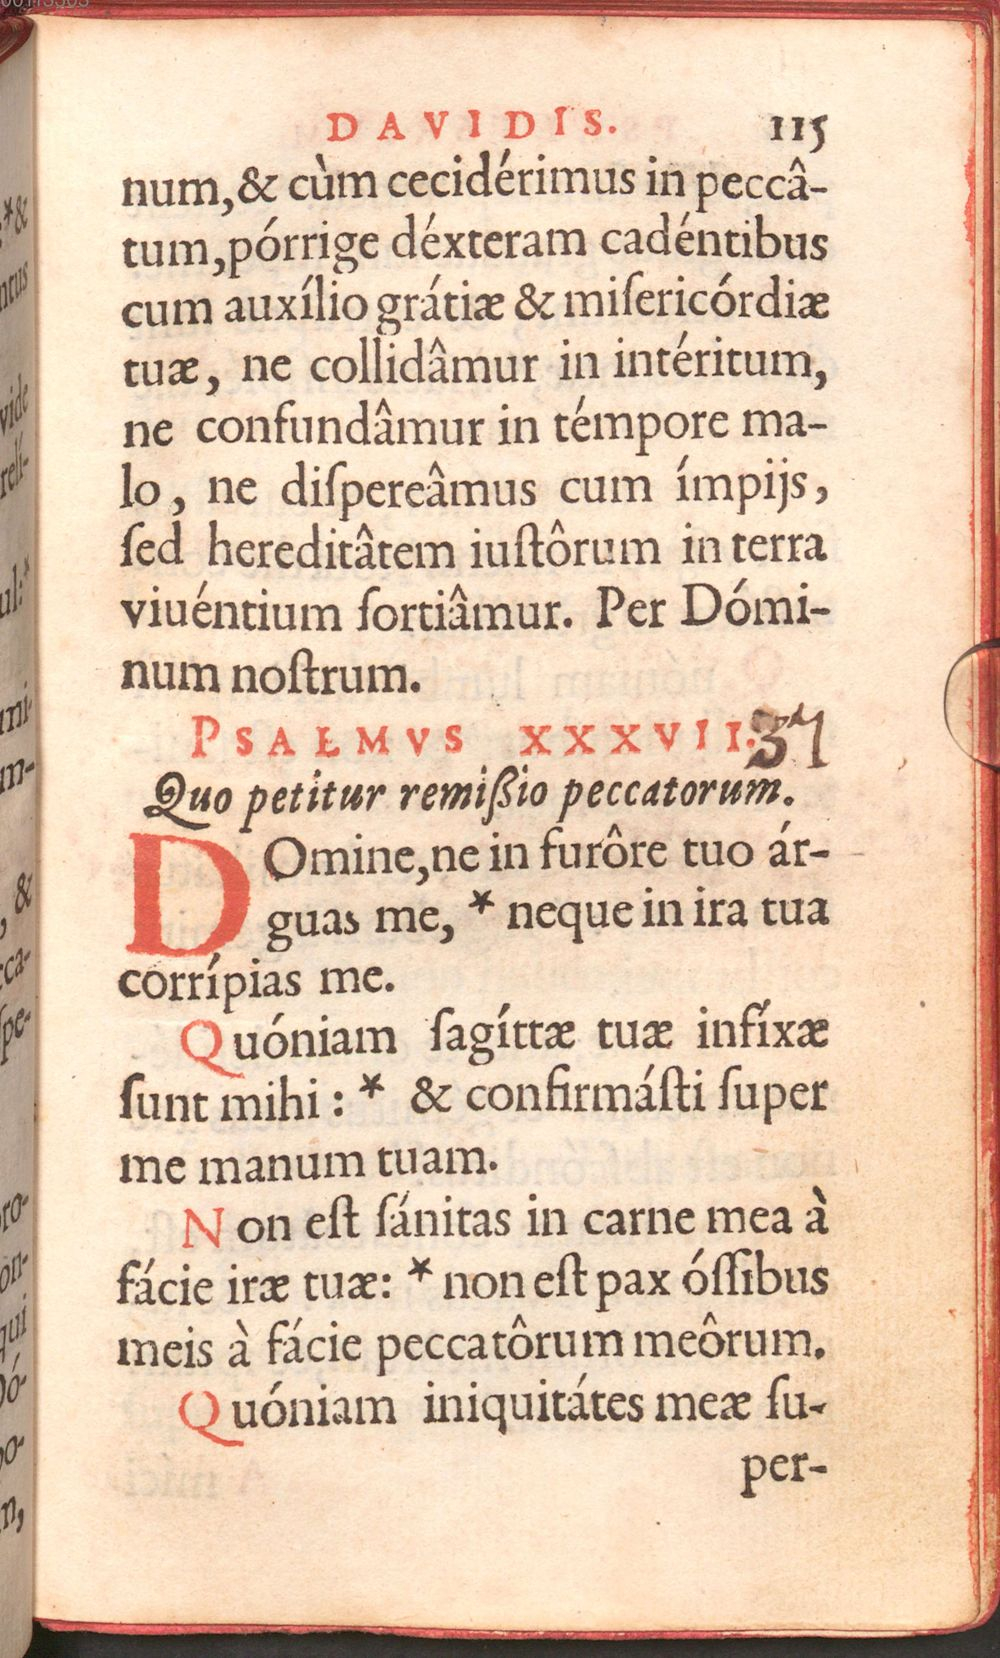 DAVIDIS. 115
num, & cùm cecidérimus in peccâ-
tum, pórrige déxteram cadéntibus
cum auxílio grátiæ & miſericórdiæ
tuæ, ne collidâmur in intéritum,
ne confundâmur in témpore ma-
lo, ne diſpereâmus cum ímpijs,
ſed hereditâtem iuſtôrum in terra
viuéntium ſortiâmur. Per Dómi-
num noſtrum.
PSALMVS XXXVII. 37
Quo petitur remißio peccatorum.
DOmine, ne in furôre tuo ár-
guas me, * neque in ira tua
corrípias me.
Quóniam ſagíttæ tuæ infíxæ
ſunt mihi : * & confirmáſti ſuper
me manum tuam.
Non eſt ſánitas in carne mea à
fácie iræ tuæ: * non eſt pax óſſibus
meis à fácie peccatôrum meôrum.
Quóniam iniquitátes meæ ſu-
per-